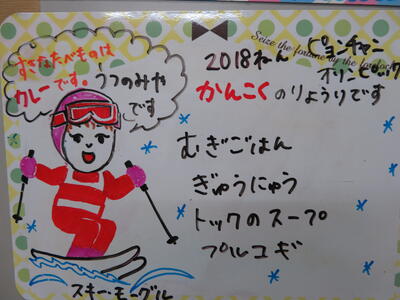 すきなたべものは
カレーです。
うつのみや
です
2018ねん
ピョンチャン
オリンピック
かんこくのりょうりです
むぎごはん
ぎゅうにゅう
トックのスープ
プルコギ
スキー・モーグル
Seize the fortune by the forelock